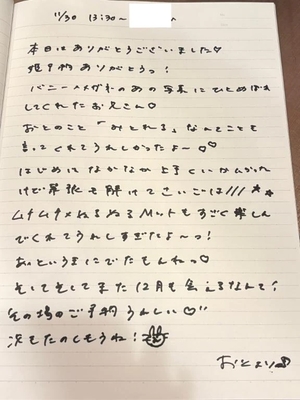 11/30 13:30~
本日はありがとうございました♡
予約ありがとうっ!
バニー×メガネのあの写真にひとめぼれ
してくれたお兄さん♡
おとのこと「みとれる」なんてことも
言ってくれてうれしかったよ~♡♡
はじめはなかなか上手くいかなかった
けど緊張も解けてさいごは///★★
ムチムチ×ぬるぬるMットもすごく楽しん
でくれてうれしすぎたよ~っ!
あっというまにでたもんねっ♡
そしてそしてまた12月も会えるなんて!
その場のご予約うれしい♡
次もたのしもうね!
おとより